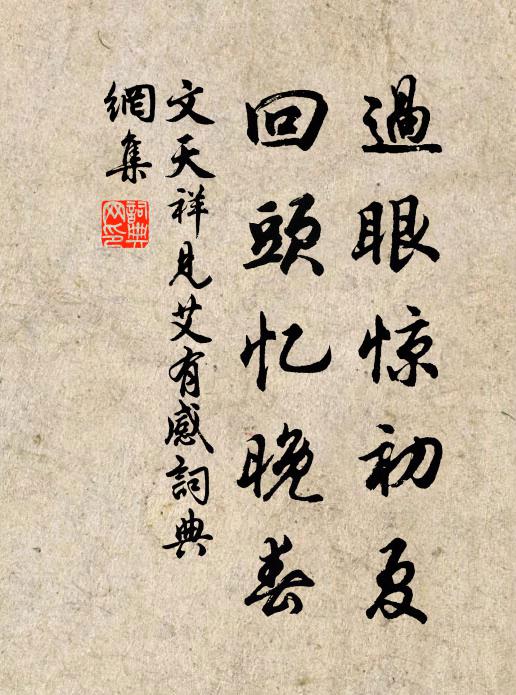 過眼惊初夏
回頭忆晚春
文天祥見艾有感詞典
網集
詞典
网印